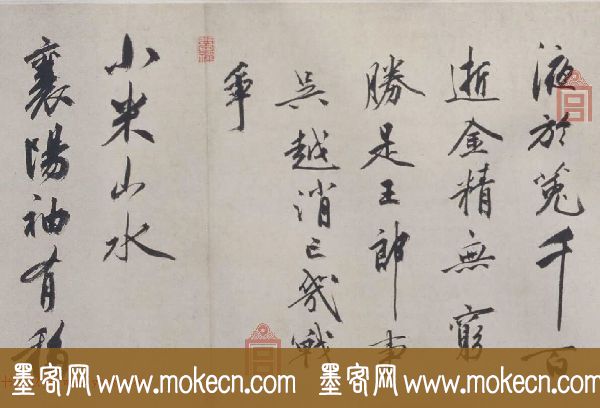 液於菟千百
逝金精無窮
勝是王郎事
吳越消已幾戰
爭
小米山水
襄陽袖有
墨客网 www.mokecn.com 墨客网 www.mokecn.com